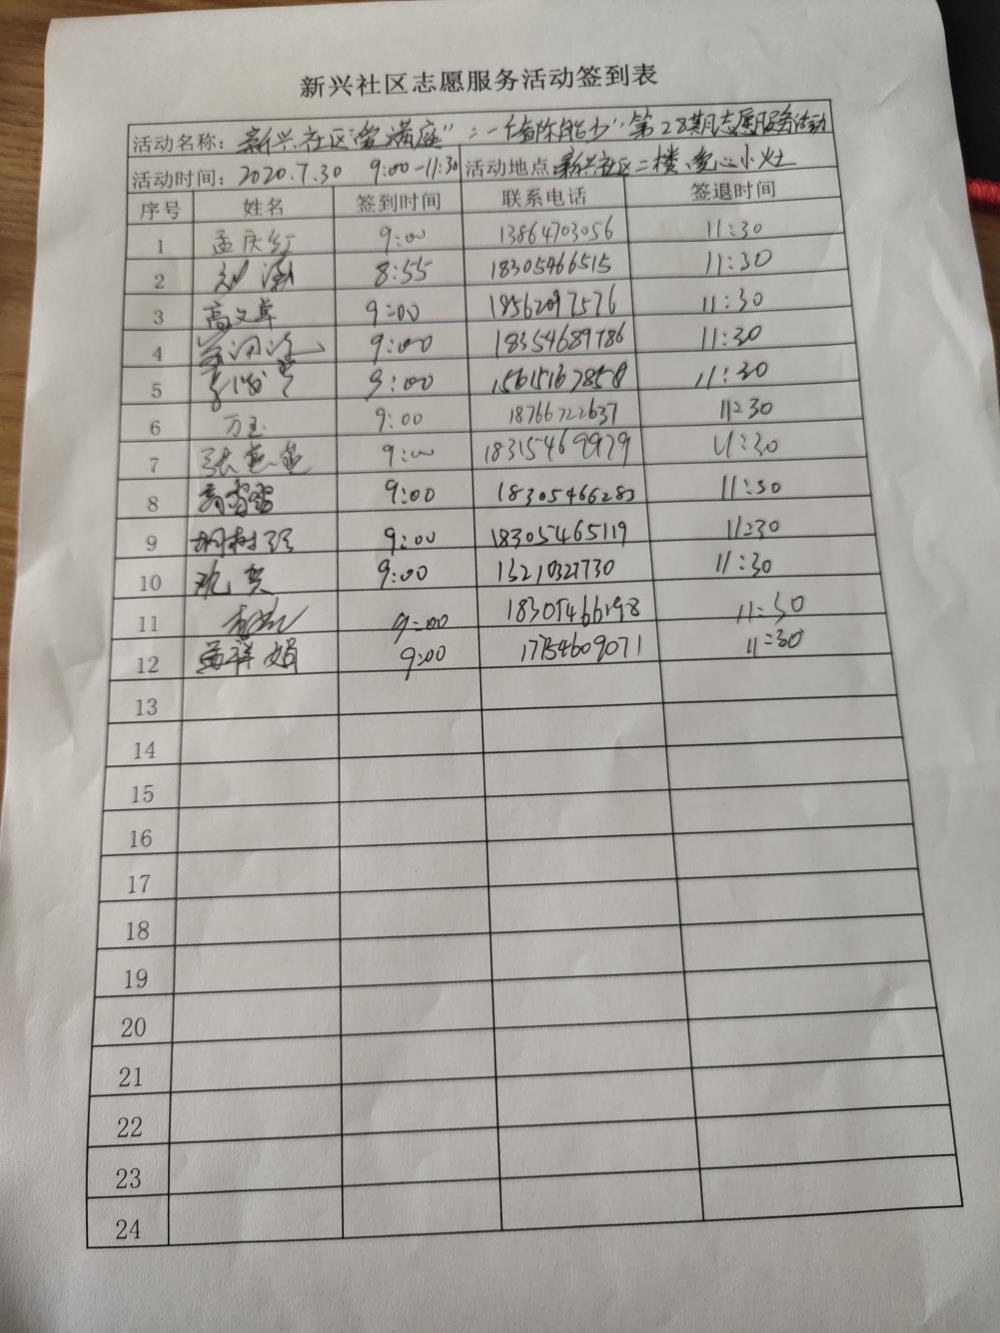 新兴社区志愿服务活动签到表
活动名称：新兴社区" 讲座" 第28期志愿服务活动
活动时间：2020.7.30 9:00-11:30 活动地点 新兴社区二楼、爱心小灶
序号 姓名 签到时间 联系电话 签退时间
1 孟庆红 9:00 13864703056 11:30
2 刘 8:55 18305466515 11:30
3 高文卓 9:00 18562097576 11:30
4 9:00 18354689786 11:30
5 李 9:00 15615167858 11:30
6 万玉 9:00 18766722637 11:30
7 张 9:00 18315469979 11:30
8 高雪雪 9:00 18305466283 11:30
9 胡树强 9:00 18305465119 11:30
10 9:00 13210321730 11:30
11 9:00 18305466198 11:30
12 黄祥娟 9:00 17754609071 11:30
13
14
15
16
17
18
19
20
21
22
23
24